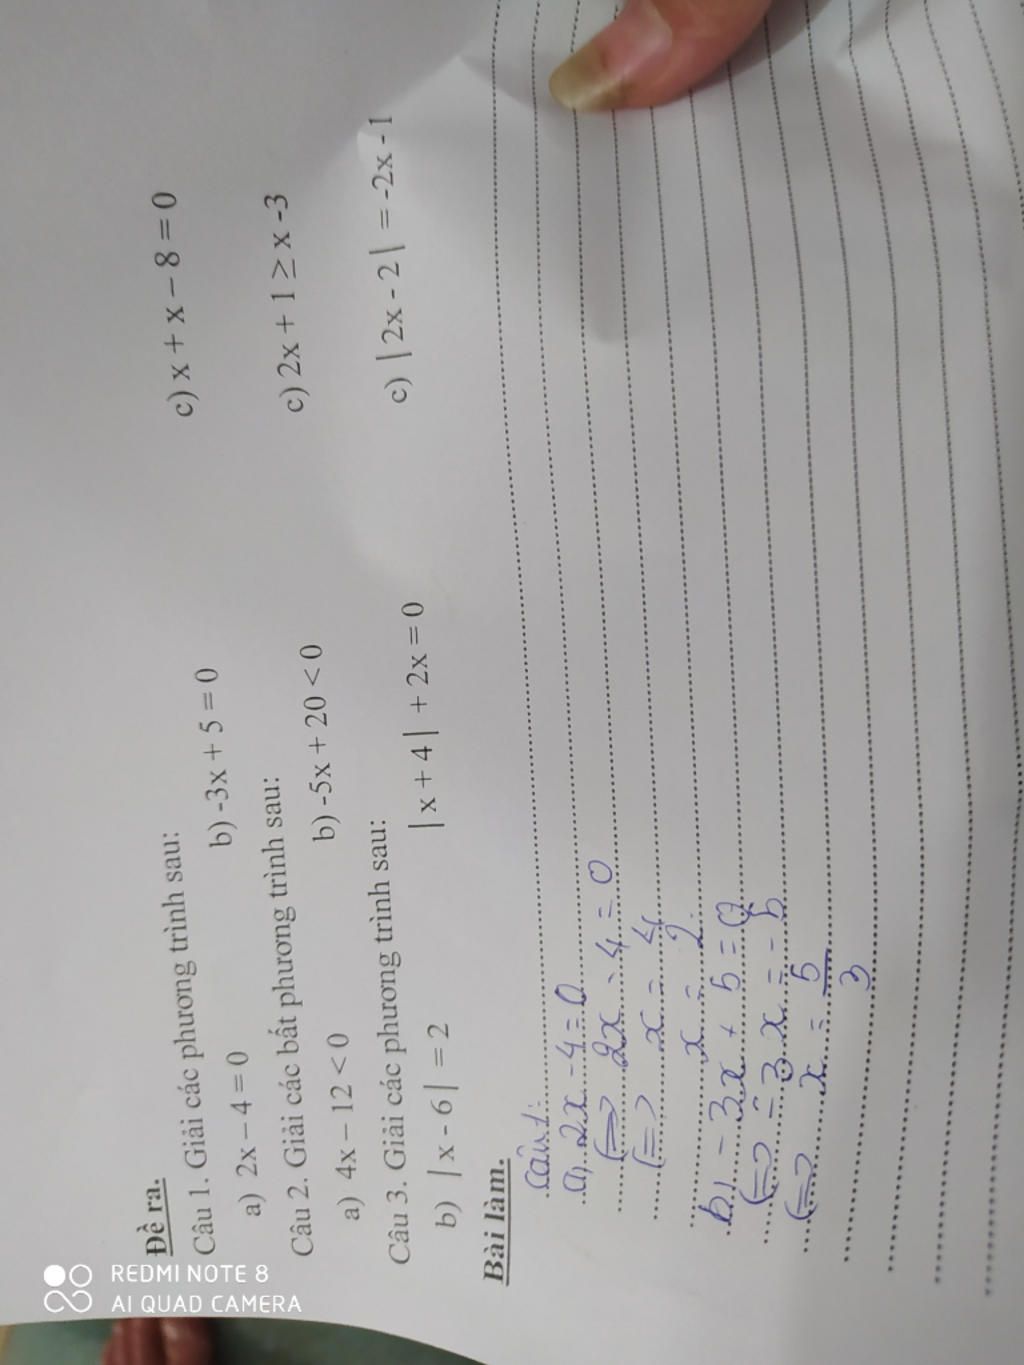 Đề ra.
Câu 1. Giải các phương trình sau:
a) 2x – 4 = 0 b) -3x + 5 = 0 c) x + x – 8 = 0
Câu 2. Giải các bất phương trình sau:
a) 4x – 12 < 0 b) -5x + 20 < 0 c) 2x + 1 ≥ x -3
Câu 3. Giải các phương trình sau:
b) | x - 6 | = 2 | x + 4 | + 2x = 0 c) | 2x - 2 | = -2x - 1
Bài làm.
Câu 1:
a, 2x - 4 = 0
<=> 2x - 4 = 0
<=> x = 4
x = 2
b, - 3x + 5 = 0
<=> - 3x = - 5
<=> x = 5/3
REDMI NOTE 8
AI QUAD CAMERA